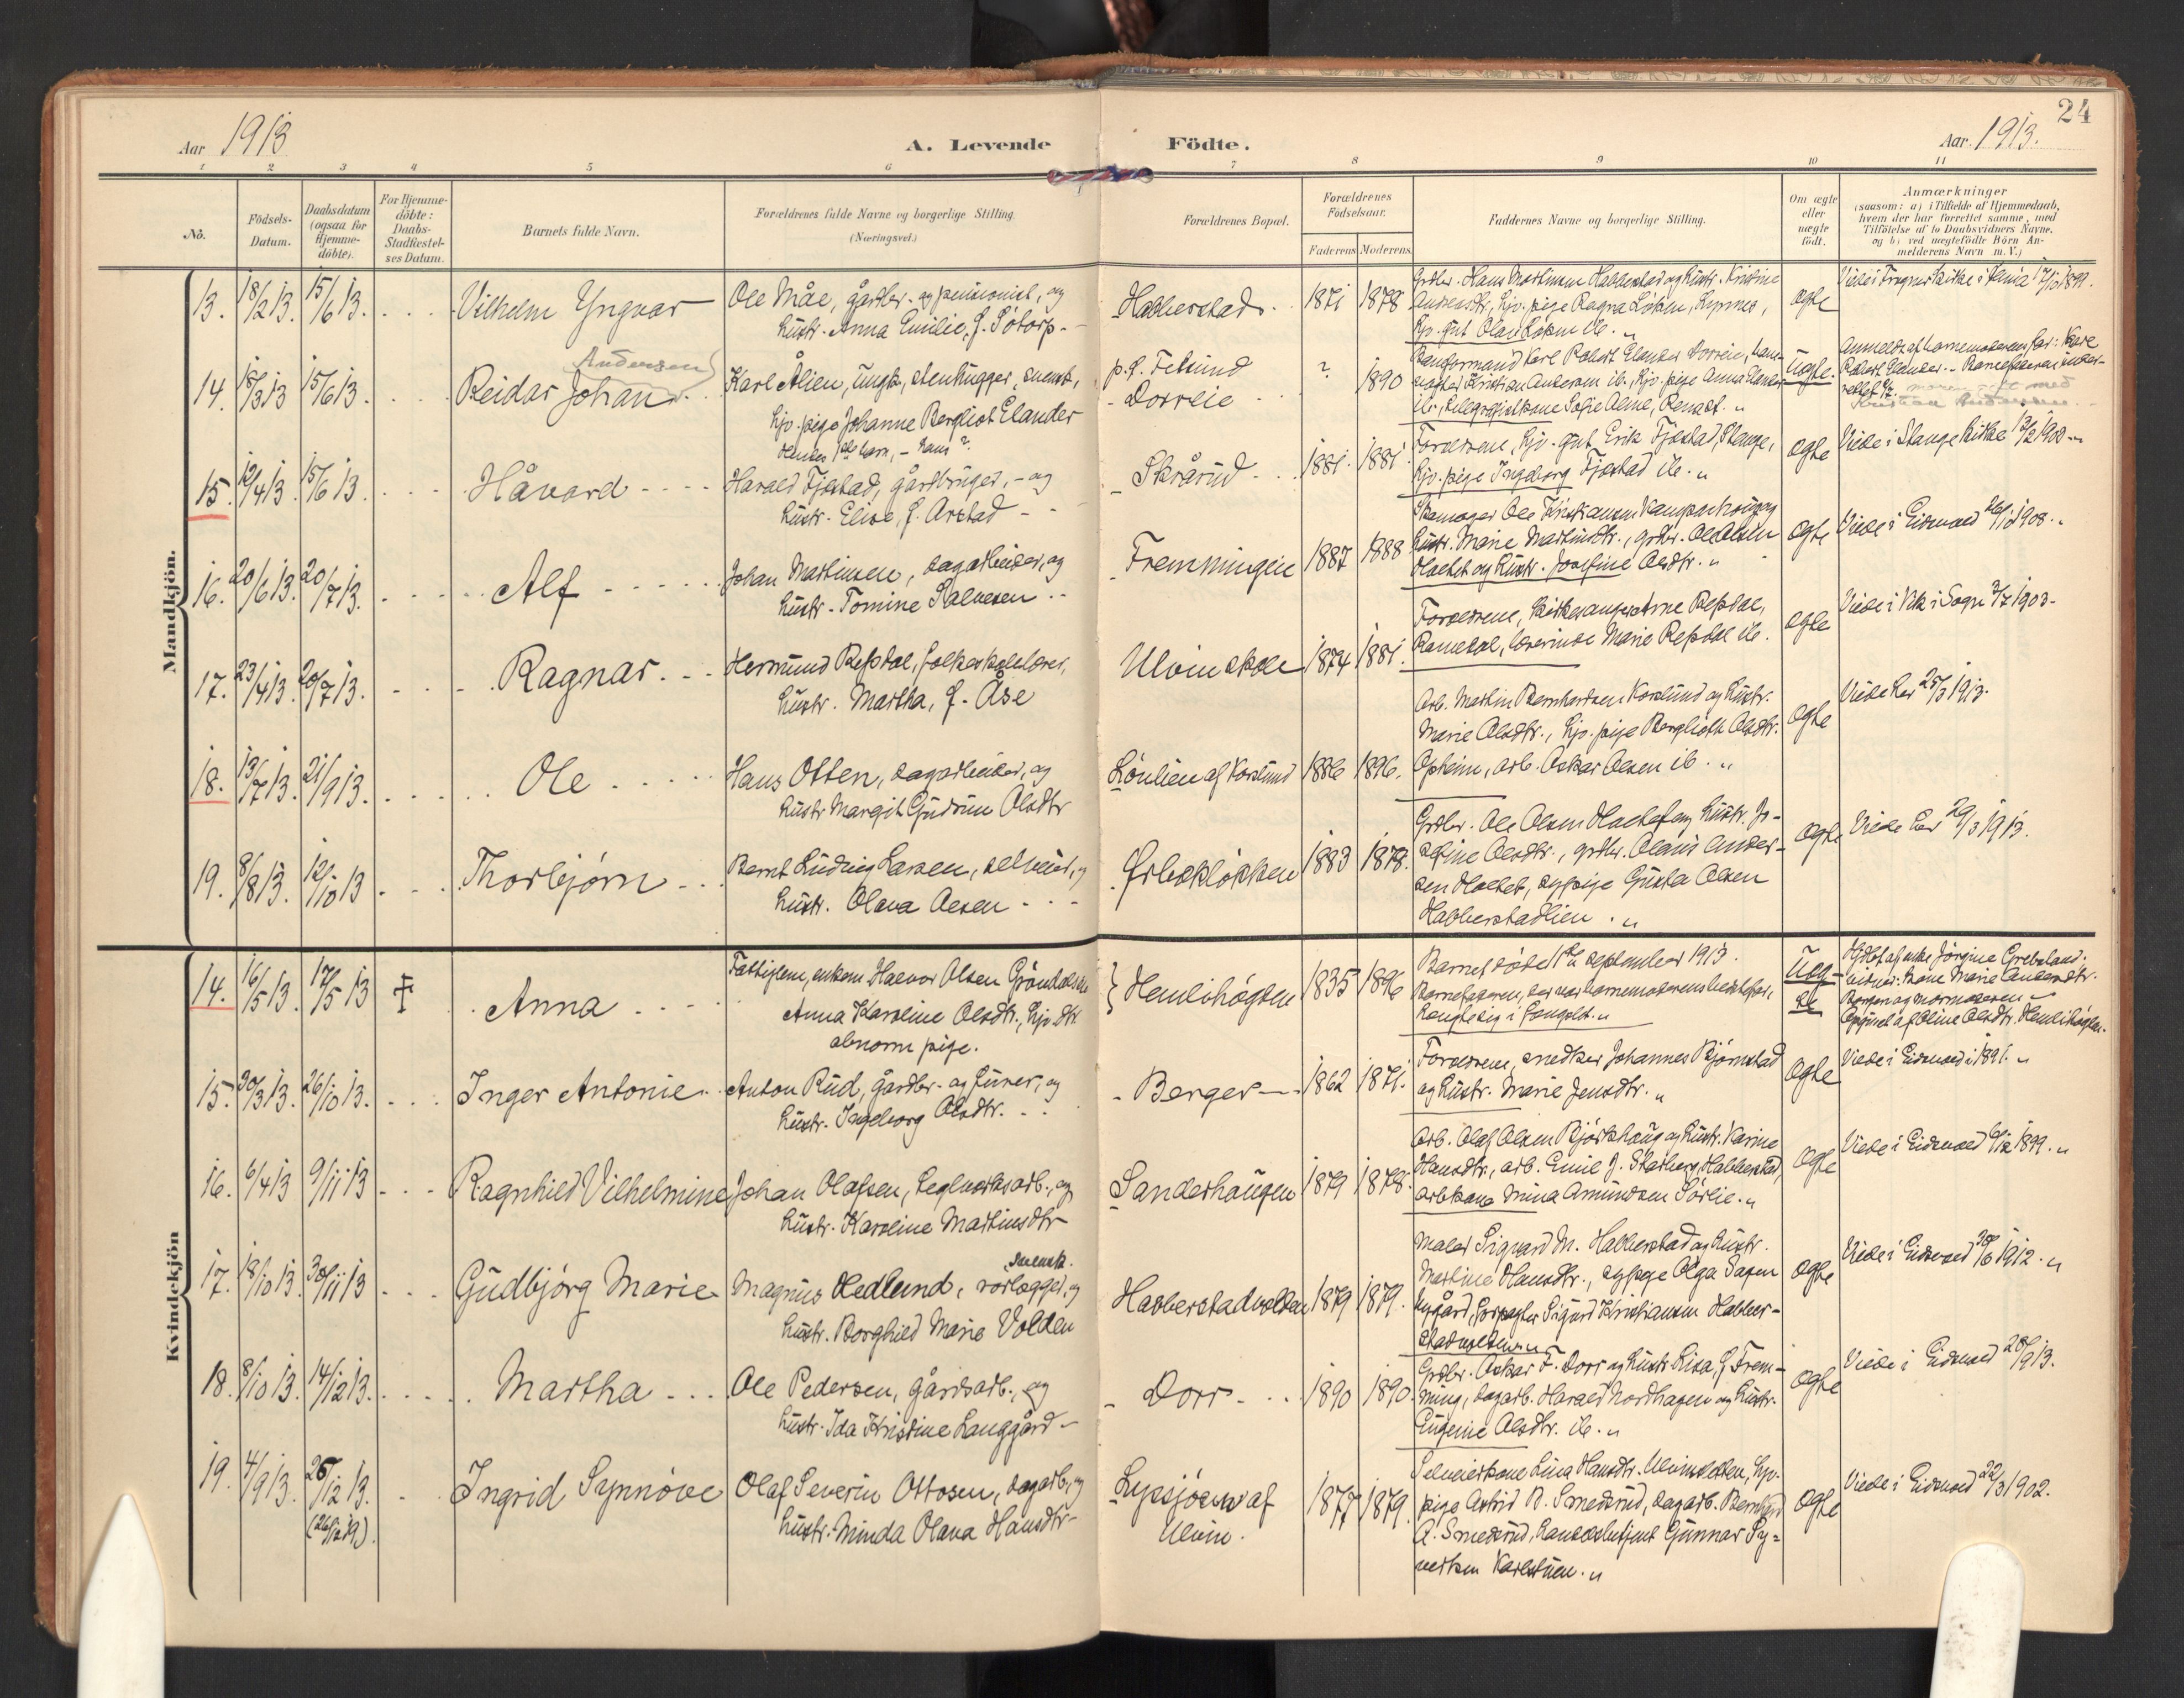 24
Aar 1913
A. Levende
Födte.
Aar. 1913.
1 2 3 4 5 6 7 8 9 10 11
No.
Födsels-
Datum.
Daabsdatum
(ogsaa for
Hjemme-
döbte).
For Hjemme-
döbte:
Daabs-
Stadfæstel-
ses Datum.
Barnets fulde Navn.
Forældrenes fulde Navne og borgerlige Stilling.
(Næringsvei.)
Forældrenes Bopæl.
Forældrenes
Födselsaar.
Faderens Moderens
Faddernes Navne og borgerlige Stilling.
Om ægte
eller
uægte
födt.
Anmærkninger
(saasom: a) i Tilfælde af Hjemmedaab,
hvem der har forrettet samme, med
Tilföielse af to Daabsvidners Navne.
og b) ved uægtefödte Börn An-
melderens Navn m. V.)
Mandkjön.
13. 18/2 13. 15/6 13. Vilhelm Yngvar
Ole Måe, gårdbr. og pensionist, og
hustr. Anna Emilie, f. Sötorp
Habberstad. 1871 1878
Grdbr. Hans Martinsen Habberstad og hustr. Kristine
Andersdtr., hjv. pige Ragna Löken,
hjv. gut Olav Löken ib.
ægte
Viede i Frogner kirke i 1899.
14. 15/3 13 15/6 13. Reidar Johan
Andersen
Karl Ålien, ungk., stenhugger, svensk,
hjv. pige Johanne Bergliot Elander
hendes 1ste barn, - hans ?
p.t. Fetsund
Dorreie
? 1890
Karl Robert Elander Dorreie,
Kristian Andersen ib., hjv. pige Anna Elander
ib., Sofie
Uægte.
Anmeldt af barnemoderens far: Karl
Robert Elander. - Barnefaderen under-
rettet
moren gift med
Kristian Andersen
15. 12/4 13. 15/6 13. Håvard
Harald Fjæstad, gårdbruger, - og
hustr. Elise, f. Arstad
Skrårud 1881. 1881.
Forældrene, hjv. gut Erik Fjæstad, Stange,
hjv. pige Ingeborg Fjæstad ib.
ægte
Viede i Stange kirke 13/2 1908
16. 20/6 13. 20/7 13. Alf
Johan Martinsen, dagarbeider, og
hustr. Tomine Salvesen
Fremmingen 1887 1888
Ole Kristiansen og
hustr. Marie Martinsdtr., grdbr. Ole Olsen
og hustr. Josefine Olsdtr.
ægte
Viede i Eidsvold 1908.
17. 23/4 13. 20/7 13. Ragnar.
Hermund Refsdal, folkeskolelærer,
hustr. Martha, f. Åse
Ulvinskole 1874 1881.
Forældrene, kirkesanger Arne Refsdal,
Ramsdal, lærerinde Marie Refsdal ib.
ægte
Viede i Vik i Sogn 3/7 1903.
18. 13/7 13. 21/9 13. Ole
Hans Otten, dagarbeider, og
hustr Margit Gudrun Olsdtr
Lönlien af Korslund 1886 1896.
Arb. Martin Bernhardsen Korslund og hustr.
Marie Olsdtr., hjv. pige Bergliott Olsdtr.
Opheim, arb. Oskar Olsen ib.
ægte
Viede her 25/3 1913.
19. 8/8 13. 12/10 13 Thorbjörn
Bernt Ludvig Larsen, selveier, og
hustr. Olava Olsen
Ørbekløkken 1883 1878.
Grdbr. Ole Olsen og hustr. Jo-
sefine Olsdtr., grdbr. Olaus Ander-
sen, sypige Gusta Olsen
Habberstadlien.
ægte
Viede her 29/3 1913.
Kvindekjön
14. 16/5 13. 17/5 13 Anna
Fattiglem, enkem. Halvor Olsen Gröndalen
Anna Karoline Olsdtr., hjv. dtr.
abnorm pige.
Hemlihögden 1835 1896
Barnet döde 1ste september 1913.
Barnefaderen, der var barnemoderens bestefar,
hængte sig i fængslet.
Uæg-
te
Hjdbt af enke Jörgine Grebsland.
vidner: kone Marie Andersdtr.
og mormoderen
af Oline Olsdtr. Hemlihögden.
15. 30/3 13. 26/10 13. Inger Antonie
Anton Rud, gårdbr. og, og
hustr. Ingeborg Olsdtr.
Berger 1862 1871.
Forældrene, snedker Johannes Bjørnstad
og hustr. Marie Jensdtr.
ægte
Viede i Eidsvold i 1891.
16. 6/4 13 9/11 13 Ragnhild Vilhelmine
Johan Olafsen, teglverksarb., og
hustr. Karoline Martinsdtr
Sanderhaugen 1879 1878.
Arb. Olaf Olsen Bjørkhaug og hustr. Karine
Hansdtr., arb. Emil J. Skarberg, Habberstad,
arb.kone Mina Amundsen Sörlie.
ægte
Viede i Eidsvold 1899.
17. 18/10 13. 30/11 13 Gudbjörg Marie
svensk.
Magnus Hedlund, rörlægger, og
hustr. Borghild Marie Volden
Habberstadvolden 1879 1879.
Maler Sigvard M. Habberstad og hustr.
Martine Hansdtr., sypige Olga
Nygård, forpagter Sigurd Kristiansen Habber-
stadvolden
ægte
Viede i Eidsvold 1912.
18. 8/10 13. 14/12 13. Martha
Ole Pedersen, gårdsarb., og
hustr. Ida Kristine Langgård
Dorr 1890 1890.
Grdbr. Oskar F. Dorr og hustr. Lisa, f. Frem-
ming, dagarb. Harald Nordhagen og hustr.
Eugenie Olsdtr. ib.
ægte
Viede i Eidsvold 28/9 13.
19. 4/9 13. 26/12 13.
(26/12 19).
Ingrid Synnöve
Olaf Severin Ottosen, dagarb., og
hustr. Minda Olava Hansdtr
Lysjöen af
Ulvin.
1877 1879.
Selveierkone Lina Hansdtr. Ulvinsletten, hjv.
pige Astrid B. Smedsrud, dagarb. Bernhard
A. Smedsrud, handelsbetjent Gunnar Sy-
vertsen Karlstuen.
ægte
Viede i Eidsvold 22/3 1902.